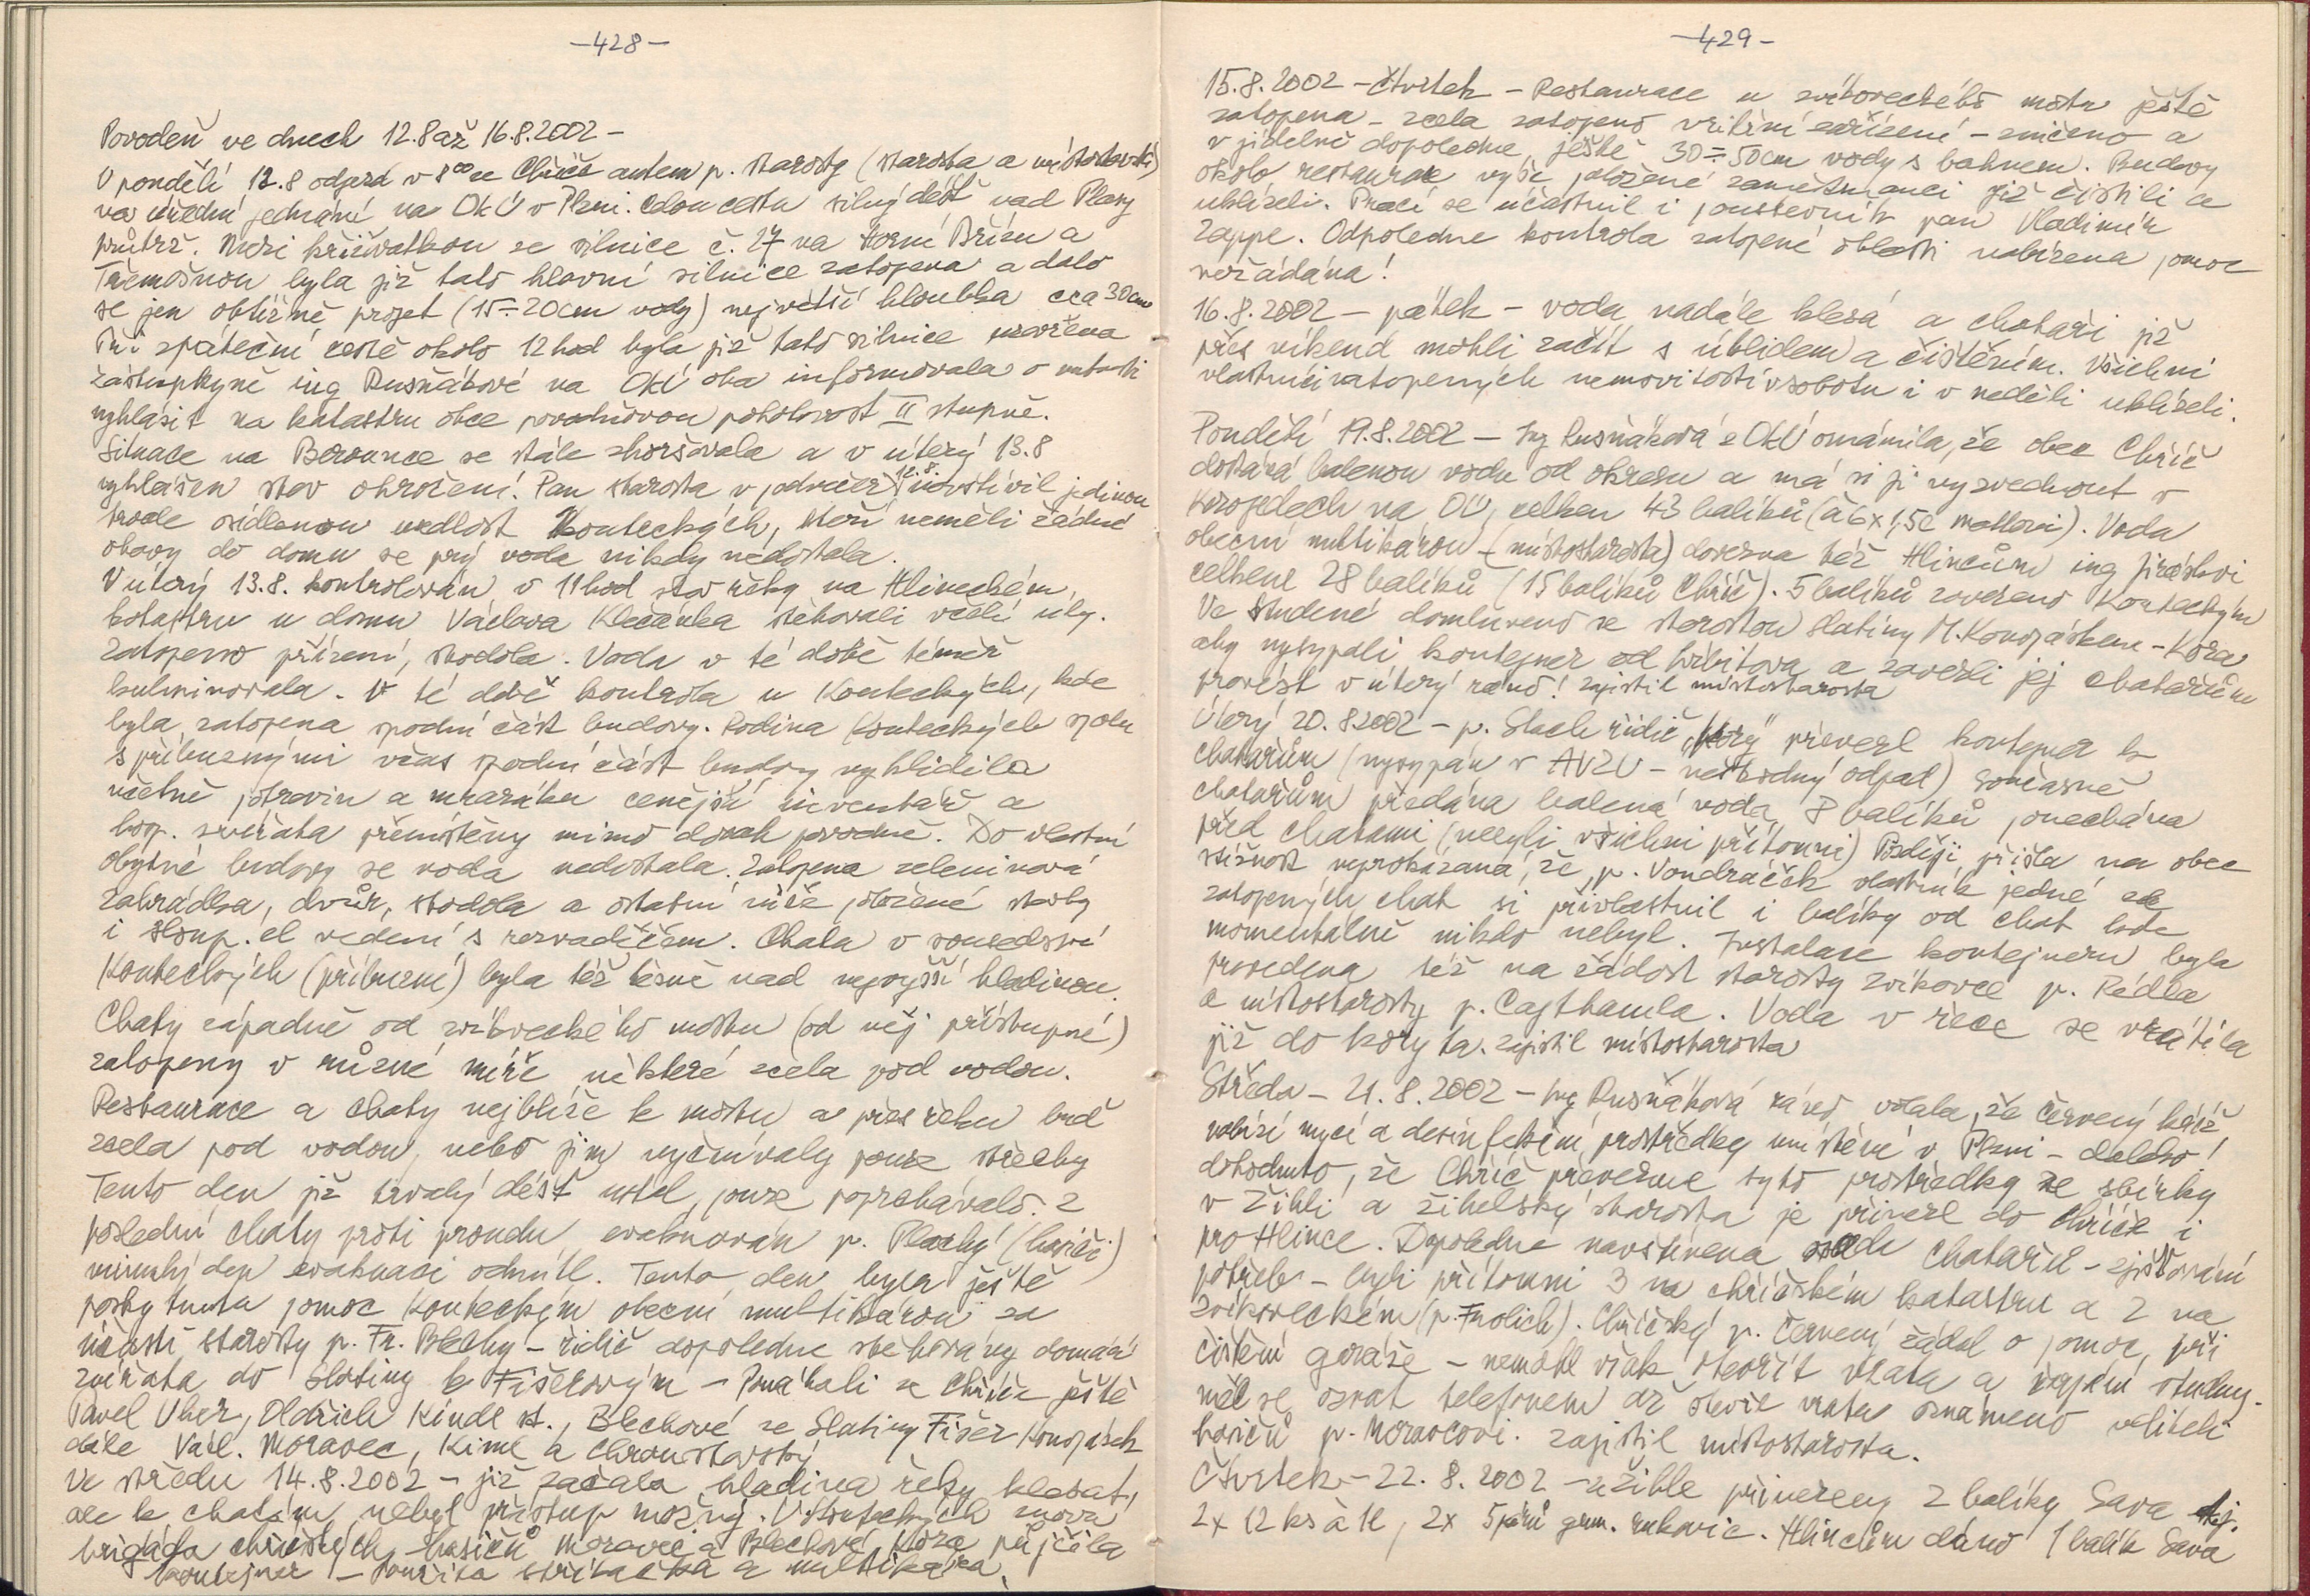 —428—
Povodeň ve dnech 12.8 až 16.8.2002 —
V pondělí 12.8 odjezd v 8⁰⁰ ze Chříče autem p. starosty (starosta a místostarosta)
na úřední jednání na OkÚ v Plzni. Celou cestu silný déšť nad Plasy
průtrž. Mezi křižovatkou ze silnice č. 27 na Horní Břízu a
Třemošnou byla již tato hlavní silnice zatopena a dalo
se jen obtížně projet (15–20cm vody) největší hloubka cca 30cm
Při zpáteční cestě okolo 12 hod byla již tato silnice uzavřena
Zástupkyně ing Rusňákové na OkÚ oba informovala o nutnosti
vyhlásit na katastru obce povodňovou pohotovost II stupně.
Situace na Berounce se stále zhoršovala a v úterý 13.8
vyhlášen stav ohrožení. Pan starosta v podvečer 12.8. navštívil jedinou
trvale osídlenou usedlost Kouteckých, kteří neměli žádné
obavy do domu se prý voda nikdy nedostala.
V úterý 13.8. kontrolován v 11 hod stav řeky na Hlineckém
katastru u domu Václava Klečánka stěhovali včelí úly.
Zatopeno přízemí, stodola. Voda v té době téměř
kulminovala. V té době kontrola u Kouteckých, kde
byla zatopena spodní část budovy. Rodina Kouteckých spolu
s příbuznými včas spodní část budovy vyklidila
včetně potravin a mrazáku cenější inventář a
hosp. zvířata přemístěny mimo dosah povodně. Do vlastní
obytné budovy se voda nedostala. Zatopena zeleninová
zahrádka, dvůr, stodola a ostatní níže položené stavby
i sloup. el vedení s rozvaděčem. Chata v sousedství
Kouteckých (příbuzní) byla též těsně nad nejvyšší hladinou.
Chaty západně od zvíkoveckého mostu (od něj přístupné)
zatopeny v různé míře některé zcela pod vodou.
Restaurace a chaty nejblíže k mostu a přes řeku buď
zcela pod vodou, nebo jim vyčnívaly pouze střechy
Tento den již trvalý déšť ustal, pouze poprchávalo. Z
poslední chaty proti proudu evakuován p. Plachý (hasiči)
minulý den evakuaci odmítl. Tento den byla ještě
poskytnuta pomoc Kouteckým obecní multikárou za
účasti starosty p. Fr. Blechy – řidič dopoledne stěhovány domácí
zvířata do Slatiny k Fišerovým – Pomáhali ze Chříče ještě
Pavel Uher, Oldřich Kindl st., Blechové ze Slatiny Fišer Konopásek
dále Václ. Moravec, Kiml a Chroustovský
Ve středu 14.8.2002 – již začala hladina řeky klesat,
ale k chatám nebyl přístup možný. U Kouteckých znova
brigáda chříčských hasičů Moravec a Blechové Kóra půjčila
kontejner – použita stříkačka a multikára.
—429—
15.8.2002 – čtvrtek – Restaurace u zvíkoveckého mostu ještě
zatopena – zcela zatopeno vnitřní zařízení – zničeno a
v jídelně dopoledne, ještě 30–50cm vody s bahnem. Budovy
okolo restaurace výše položené zaměstnanci již čistili a
uklízeli. Prací se účastnil i poustevník pan Vladimír
Zappe. Odpoledne kontrola zatopené oblasti nabízena pomoc
nežádána!
16.8.2002 – pátek – voda nadále klesá a chataři již
přes víkend mohli začít s úklidem a čištěním. Všichni
vlastníci zatopených nemovitostí v sobotu i v neděli uklízeli.
Pondělí 19.8.2002 – Ing Rusňáková z OkÚ oznámila, že obec Chříč
dostává balenou vodu od okresu a má si ji vyzvednout v
Kozojedech na OÚ, celkem 43 balíků (à 6x1,5l Mattoni). Voda
obecní multikárou – (místostarosta) dovezena též Hlincům ing Jiráskovi
celkem 28 balíků (15 balíků Chříč). 5 balíků zavezeno Kouteckým
Ve Studené domluveno se starostou Slatiny M. Konopáskem – Kóra
aby vysypali kontejner od hřbitova a zavezli jej chatařům
provést v úterý ráno! zajistil místostarosta
Úterý 20.8.2002 – p. Stach řidič „Kóry" převezl kontejner k
chatařům (vysypán v AVZU – neškodný odpad) současně
chatařům předána balená voda, 8 balíků ponechána
před chatami (nebyli všichni přítomni) Později přišla na obec
stížnost neprokázaná, že p. Vondráček vlastník jedné ze
zatopených chat si přivlastnil i balíky od chat kde
momentálně nikdo nebyl. Instalace kontejneru byla
provedena též na žádost starosty Zvíkovce p. Rédla
a místostarosty p. Cajthamla. Voda v řece se vrátila
již do koryta. zajistil místostarosta
Středa – 21.8.2002 – Ing Rusňáková ráno volala, že Červený kříž
nabízí mycí a desinfekční prostředky umístění v Plzni – daleko!
dohodnuto, že Chříč převezme tyto prostředky ze sbírky
v Žihli a žihelský starosta je přivezl do Chříče i
pro Hlince. Dopoledne navštívena osada chatařů – zjišťování
potřeb – byli přítomni 3 na chříčském katastru a 2 na
Zvíkoveckém (p. Frolich). Chříčský p. Červený žádal o pomoc při
čištění garáže – nemohl však otevřít vrata a čerpání studny.
měl se ozvat telefonem až otevře vrata oznámeno veliteli
hasičů p. Moravcovi. zajistil místostarosta.
Čtvrtek – 22.8.2002 – z Žihle přivezeny 2 balíky Sava tj.
2x 12 ks à 1l, 2x 5 párů gum. rukavic. Hlincům dáno 1 balík Sava